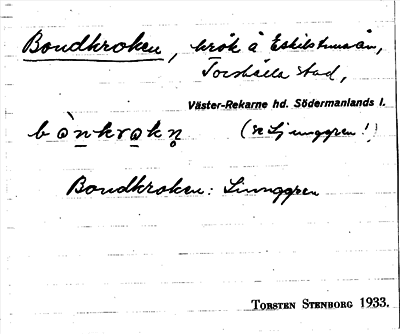 Bondkroken, krök å Eskilstunaån,
Torshälla stad,
Väster-Rekarne hd. Södermanlands l.
bò̱nkra̱kn̥ (se Ljunggren!)
Bondkroken: Ljunggren
TORSTEN STENBORG 1933.